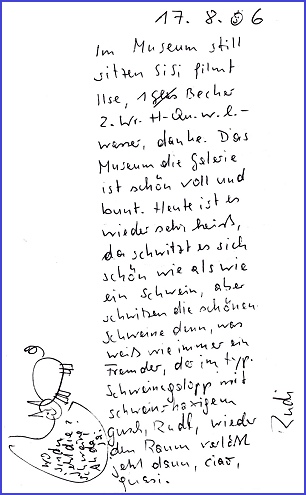 17. 8. 06
Im Museum still
sitzen Sisi filmt
Ilse, 1 Becher
2. Wr. H-Qu. w. l.-
wasser, danke. Das
Museum die Galerie
ist schön voll und
bunt. Heute ist es
wieder sehr heiß,
da schwitzt es sich
schön wie als wie
ein Schwein, aber
schwitzen die schönen
Schweine denn, was
weiß wie immer ein
Fremder, der im typ.
Schweinsgalopp mit
schweins
Rudi, wieder
den Raum verläßt
jetzt dann, ciao,
quasi.
Rudi
wo
sind
die
Schweine?
Ah da